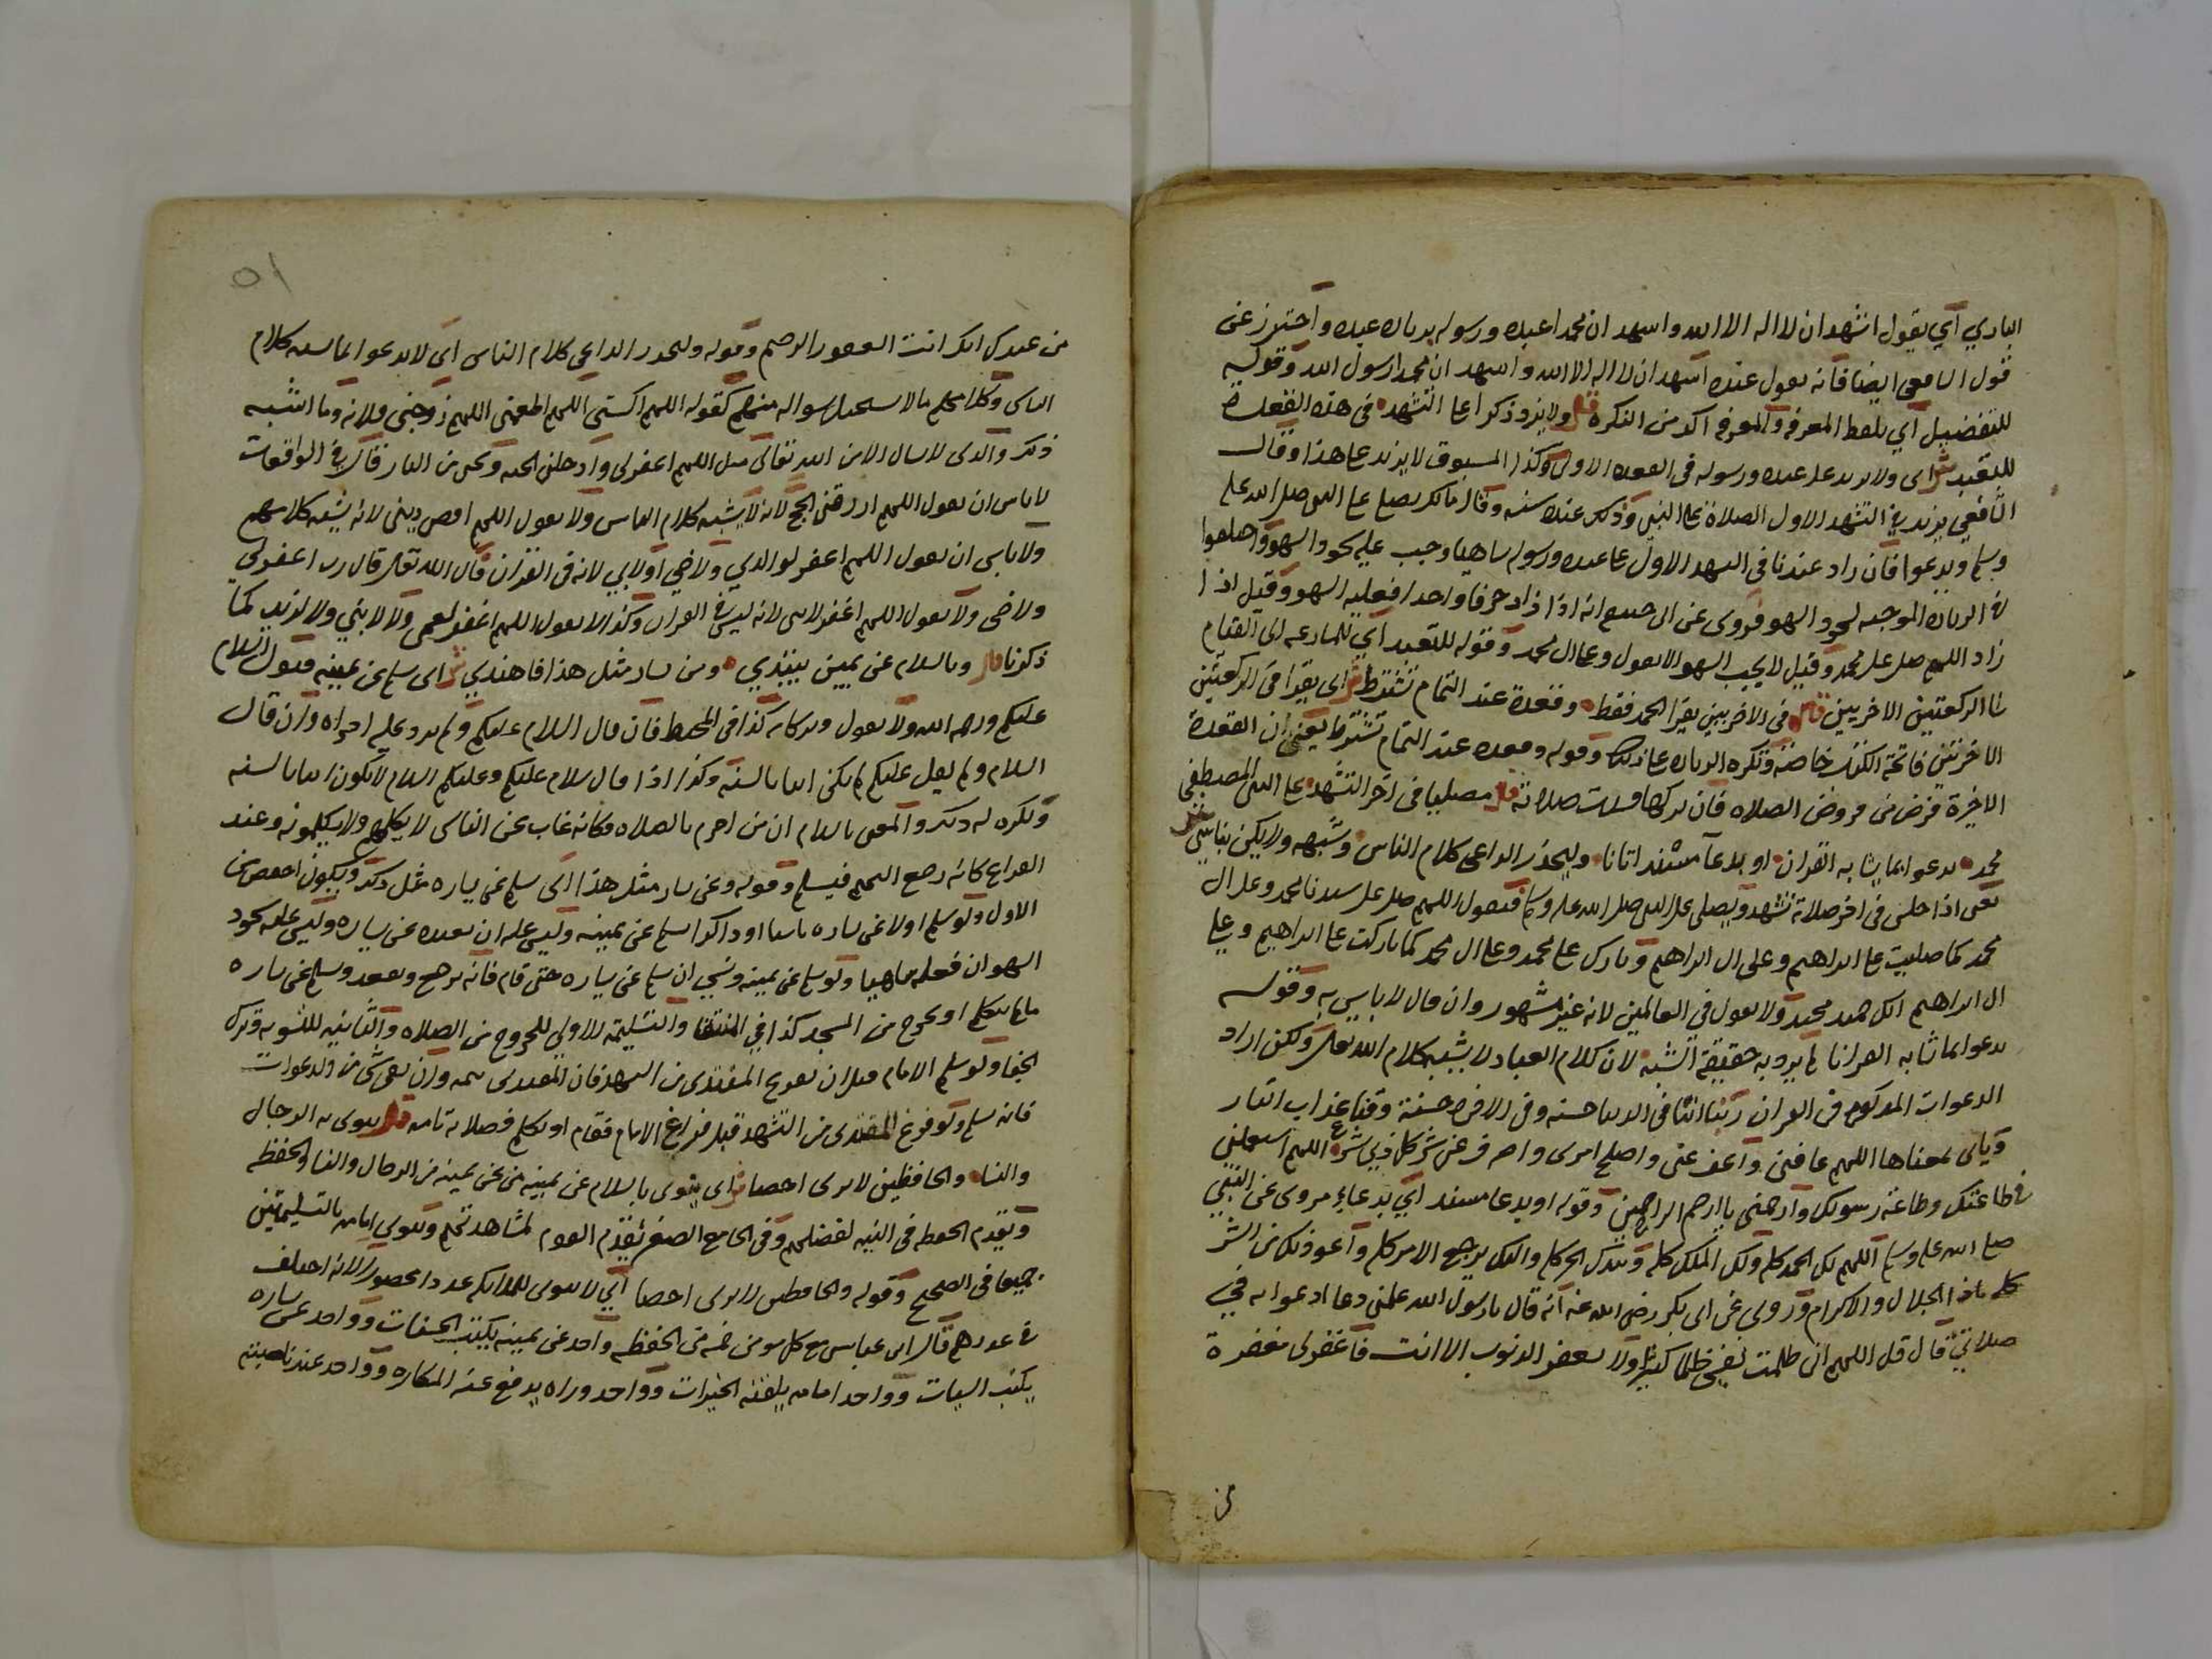 الباري اي يقول اشهد ان لا اله الا الله واشهد ان محمدا عبده ورسوله بزيادة عبده واحترز عن
قول الشافعي ايضا فانه يقول عنده اشهد ان لا اله الا الله واشهد ان محمدا رسول الله وقوله
للتفضيل اي بلفظ المعرفه والمعرفه اكد من النكره قال ولا يزد ذكرا على التشهد في هذه القعدة
للتقيد ش اى ولا يزيد على عبده ورسوله في القعده الاولى وكذا المسبوق لا يزيد على هذا وقال
الشافعي يزيد في التشهد الاول الصلاة على النبي وذلك عنده سنه وقال مالك يصلي على النبي صلى الله عليه
وسلم ويدعوا فان زاد عندنا في التشهد الاول على عبده ورسوله ساهيا وجب عليه سجود السهو واختلفوا
في الزياده الموجبه لسجود السهو فروى عن ابي حنيفه انه اذا زاد حرفا واحدا فعليه السهو وقيل اذا
زاد اللهم صل على محمد وقيل لا يجب السهو الا بقول وعلى ال محمد وقوله للتقيد اي للمسارعه الى القيام
الى الركعتين الاخريين قال في الاخريين يقرا الحمد فقط وقعدة عند التمام تشترط ش اى يقرا في الركعتين
الاخرتين فاتحة الكتاب خاصة وتكره الزياده على ذلك وقوله وقعده عند التمام تشترط يعني ان القعدة
الاخيرة فرض من فروض الصلاه فان تركها فسدت صلاته قال مصليا في اخر التشهد على النبي المصطفى
محمد يدعوا بما يشابه القران او بدعا مسند اتانا وليحذر الداعي كلام الناس وشبهه ولا يكن بناسي ش
يعني اذا جلس في اخر صلاته تشهد ويصلي على النبي صلى الله عليه وسلم فيقول اللهم صل على سيدنا محمد وعلى ال
محمد كما صليت على ابراهيم وعلى ال ابراهيم وبارك على محمد وعلى ال محمد كما باركت على ابراهيم وعلى
ال ابراهيم انك حميد مجيد ولا يقول في العالمين لانه غير مشهور وان قال لا باس به وقوله
يدعوا بما شابه القرانا لم يرد به حقيقة الشبه لان كلام العباد لا يشبه كلام الله تعالى ولكن اراد
الدعوات المذكوره في القران ربنا اتنا في الدنيا حسنه وفي الاخره حسنة وقنا عذاب النار
وياتى بمعناها اللهم عافني واعف عني واصلح امرى واصرف عني شر كل ذي شر اللهم استعملني
في طاعتك وطاعة رسولك وارحمني يا ارحم الراحمين وقوله او بدعا مسند اي بدعاء مروى عن النبي
صلى الله عليه وسلم اللهم لك الحمد كله ولك الملك كله وبيدك الخير كله واليك يرجع الامر كله واعوذ بك من الشر
كله يا ذا الجلال والاكرام وروى عن ابى بكر رضى الله عنه انه قال يا رسول الله علمني دعا ادعوا به في
صلاتي قال قل اللهم انى ظلمت نفسي ظلما كثيرا ولا يغفر الذنوب الا انت فاغفر لي مغفرة
من
٥١
من عندك انك انت الغفور الرحيم وقوله وليحذر الداعي كلام الناس اى لا يدعوا بما يشبه كلام
الناس وكلامهم ما لا يستحيل سواله منهم كقوله اللهم اكسني اللهم اطعمني اللهم زوجني فلانه وما اشبه
ذلك والذى لا يسال الا من الله تعالى مثل اللهم اغفر لى وادخلني الجنه ونجني من النار قال في الواقعات
لا باس ان يقول اللهم ارزقني الحج لانه لا يشبه كلام الناس ولا يقول اللهم اقض ديني لانه يشبه كلامهم
ولا باس ان يقول اللهم اغفر لوالدي ولاخي اولابي لانه في القران قال الله تعالى قال رب اغفر لي
ولاخى ولا يقول اللهم اغفر لابني لانه ليس في القران وكذا لا يقول اللهم اغفر لعمي ولا لابنتي ولا لزيد كما
ذكرنا قال وبالسلام عن يمين يبتدي ومن يسار مثل هذا فاهتدي ش اى يسلم عن يمينه فيقول السلام
عليكم ورحمة الله ولا يقول وبركاته كذا في المحيط فان قال السلام عليكم ولم يزد عليه اجزاه وان قال
السلام ولم يقل عليكم لم يكن اتيا بالسنه وكذا اذا قال سلام عليكم وعليكم السلام لا يكون اتيا بالسنه
وتكره له ذلك والمعنى بالسلام ان من احرم بالصلاه فكانه غاب عن الناس لا يكلمهم ولا يكلمونه وعند
الفراغ كانه رجع اليهم فيسلم وقوله وعن يسار مثل هذا اى يسلم عن يساره مثل ذلك ويكون اخفض من
الاول ولو سلم اولا عن يساره ناسيا او ذاكرا يسلم عن يمينه وليس عليه ان يعيده عن يساره وليس عليه سجود
السهو ان فعله ساهيا ولو سلم عن يمينه ونسي ان يسلم عن يساره حتى قام فانه يرجع ويقعد ويسلم عن يساره
ما لم يتكلم او يخرج من المسجد كذا في المنتقا والتسليمة الاولى للخروج من الصلاه والثانيه للتسويه وترك
الجفا ولو سلم الامام قبل ان يفرغ المقتدى من التشهد فان المقتدى يتمه وان بقى شى من الدعوات
فانه يسلم ولو فرغ المقتدى من التشهد قبل فراغ الامام فقام او تكلم فصلاته تامه قال ينوى به الرجال
والنسا والحافظين لا يرى احصا ش اى ينوى بالسلام عن يمينه من عن يمينه من الرجال والنسا والحفظه
ويقدم الحفظه في النيه لفضلهم وفي الجامع الصغير يقدم القوم لمشاهدتهم وينوى امامه بالتسليمتين
جميعا في الصحيح وقوله والحافظين لا يرى احصا اي لا ينوى للملايكه عددا محصورا لانه اختلف
في عددهم قال ابن عباس مع كل مومن خمسه من الحفظه واحد عن يمينه يكتب الحسنات وواحد عن يساره
يكتب السيات وواحد امامه يلقنه الخيرات وواحد وراه يدفع عنه المكاره وواحد عند ناصيته